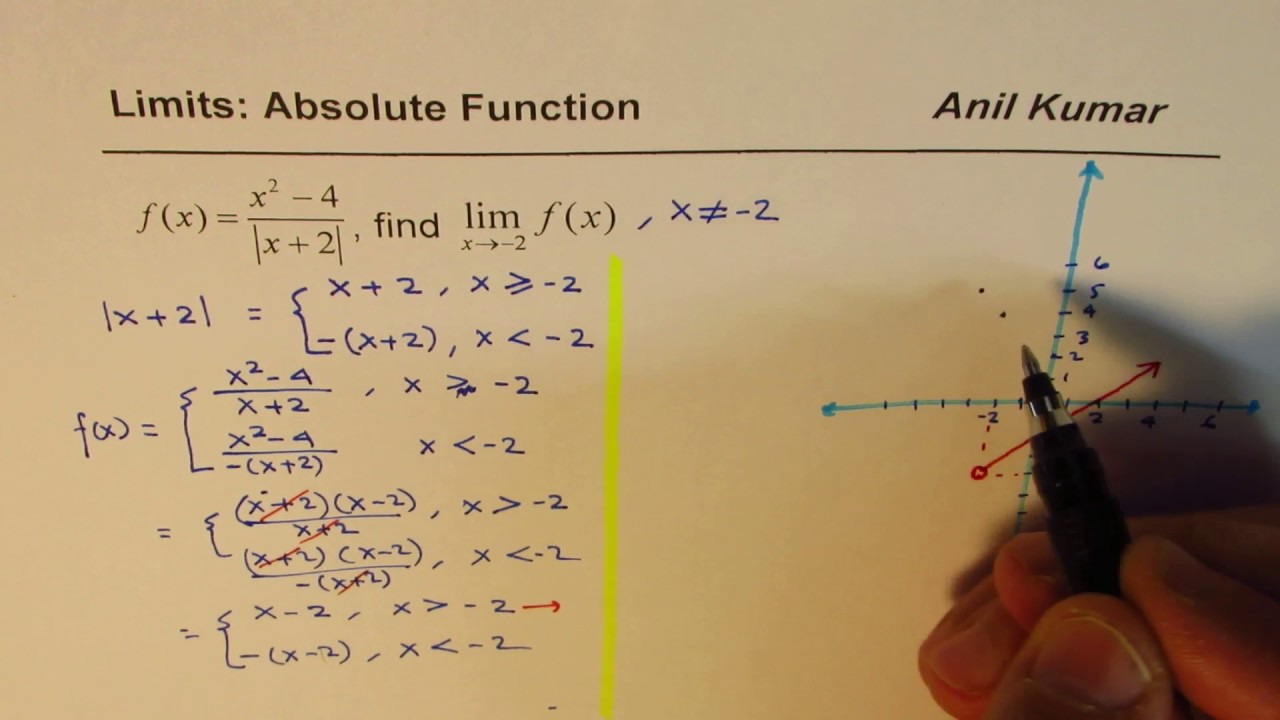 Limits: Absolute Function Anil Kumar
f(x) = (x² − 4)/|x + 2| , find lim x→−2 f(x) , x ≠ −2
|x+2| = { x+2 , x ≥ −2
−(x+2) , x < −2
f(x) = { (x²−4)/(x+2) , x ≥ −2
(x²−4)/(−(x+2)) x < −2
= { (x+2)(x−2)/(x+2) , x > −2
(x+2)(x−2)/(−(x+2)) , x < −2
= { x−2 , x > −2 →
−(x−2) , x < −2
6
5
4
3
2
1
−2 2 4 6